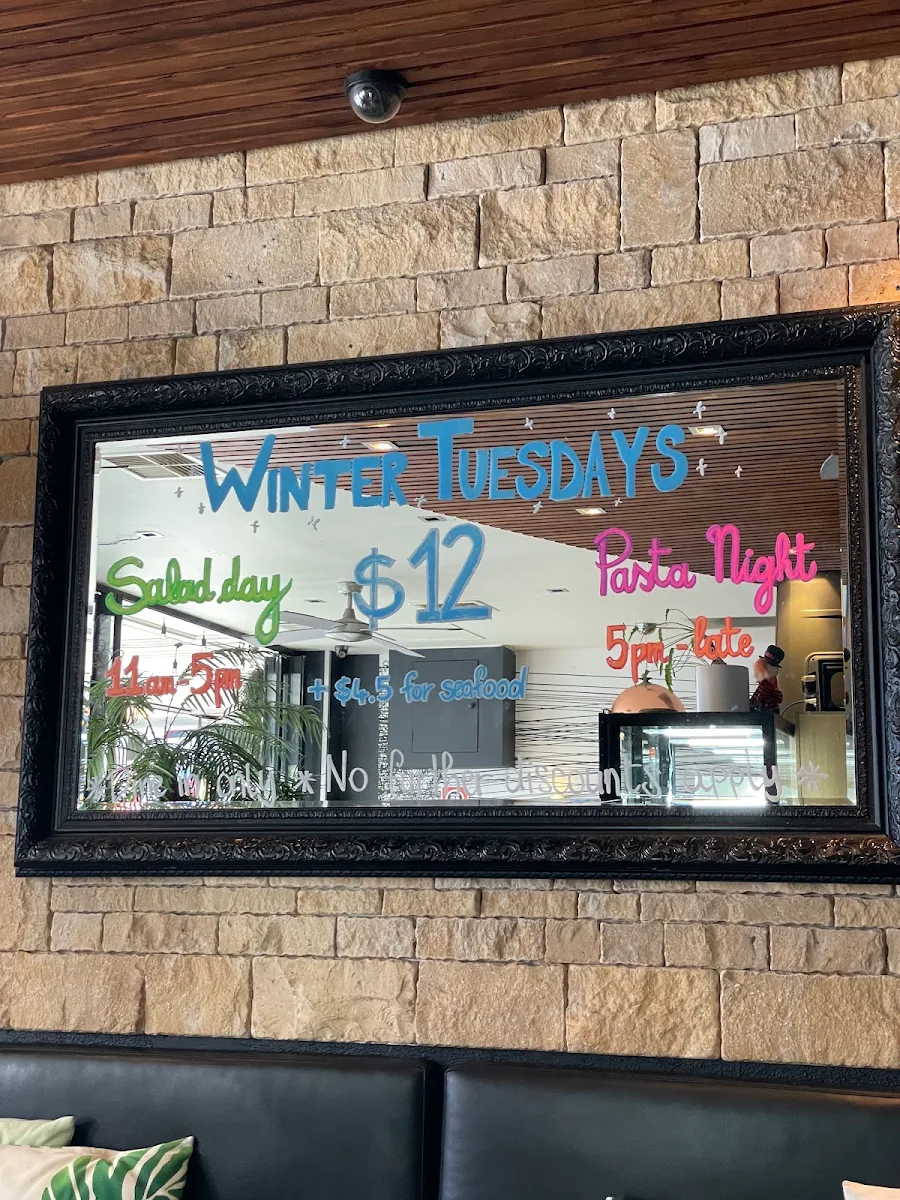 WINTER TUESDAYS
Salad day
$12
Pasta Night
11am-5pm
+ $4.5 for seafood
5pm-late
*Dine in only *No further discounts apply*